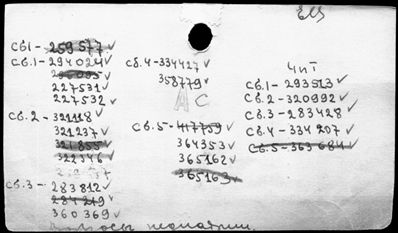 ЕИ
СВ1 - 259577
СВ.1 - 294024
296095
227531
227532
СВ.2 - 321118
321237
321855
322346
СВ.3 - 283812
284219
360369
СВ.4 - 334427
358779
АС
СВ.5 - 417759
364353
365162
365163
ЧИТ
СВ.1 - 293513
СВ.2 - 320992
СВ.3 - 283428
СВ.4 - 334207
СВ.5 - 363684